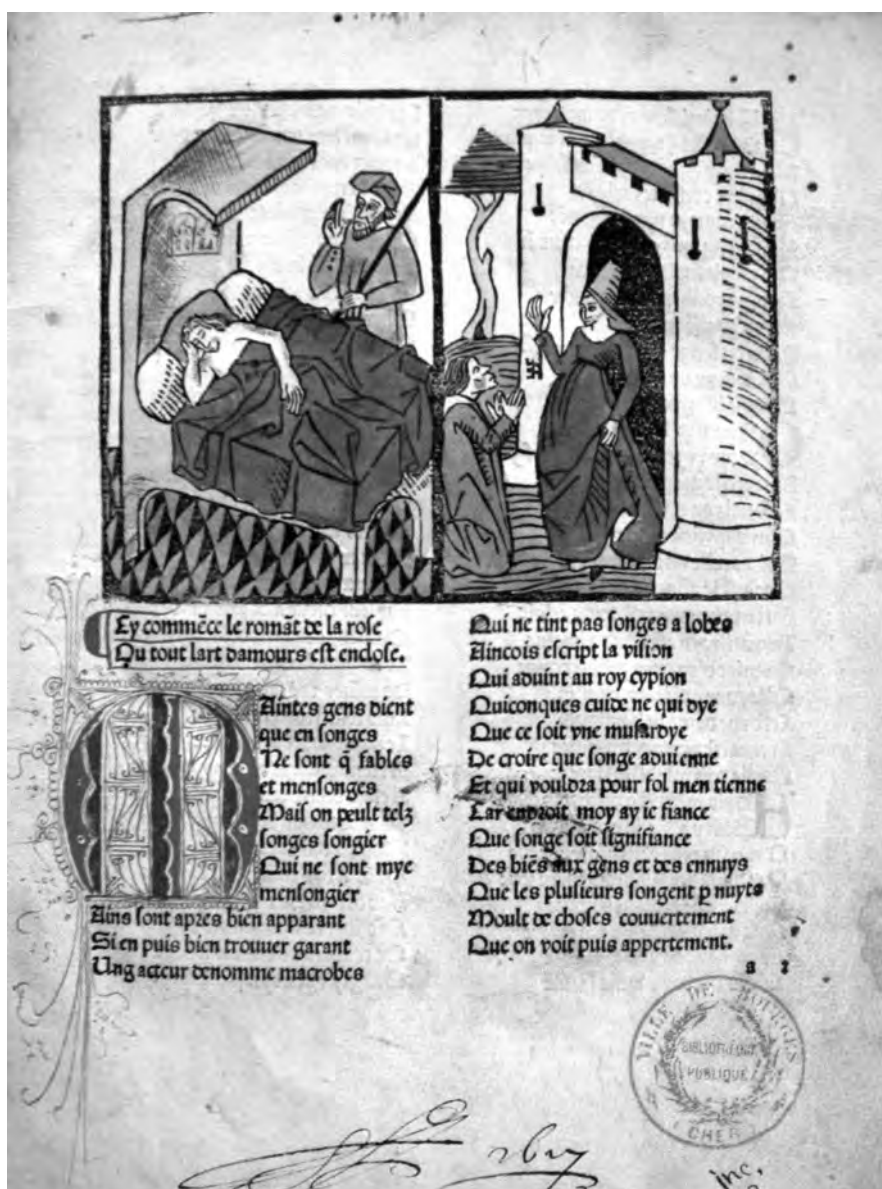 Cy commēce le romāt de la rose
Ou tout lart damours est enclose.
Maintes gens dient
que en songes
Ne sont q̄ fables
et mensonges
Mais on peult telz
songes songier
Qui ne sont mye
mensongier
Ains sont apres bien apparant
Si en puis bien trouuer garant
Ung acteur denomme macrobes
Qui ne tint pas songes a lobes
Aincois escript la vision
Qui aduint au roy cypion
Quiconques cuide ne qui dye
Que ce soit vne musardye
De croire que songe aduienne
Et qui vouldra pour fol men tienne
Car endroit moy ay ie fiance
Que songe soit signifiance
Des biēs aux gens et des ennuys
Que les plusieurs songent p nuyts
Moult de choses couuertement
Que on voit puis appertement.
VILLE DE BOURGES
BIBLIOTHEQUE
PUBLIQUE
(CHER)
inc.